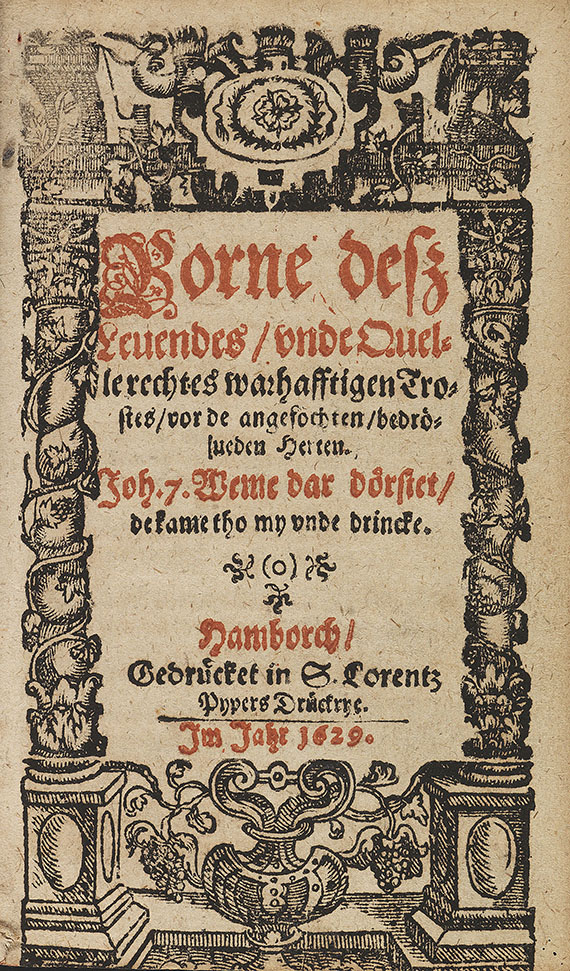 Borne desz
Leuendes / vnde Quel⸗
le rechtes warhafftigen Tro⸗
stes / vor de angefochten / bedrö⸗
sueden Herten.
Joh. 7. Weme dar dörstet /
de kame tho my vnde drincke.
(o)
Hamborch /
Gedrücket in S. Lorentz
Pypers Drückrye.
Im Jahr 1629.